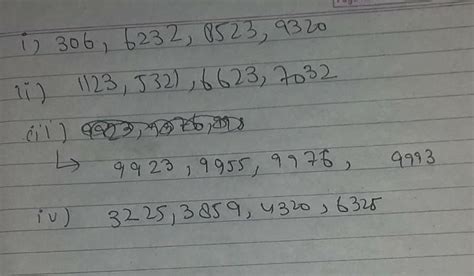 i) 306, 6232, 8523, 9320
ii) 1123, 5321, 6623, 7032
iii)
↳ 9923, 9955, 9976, 9993
iv) 3225, 3859, 4320, 6325